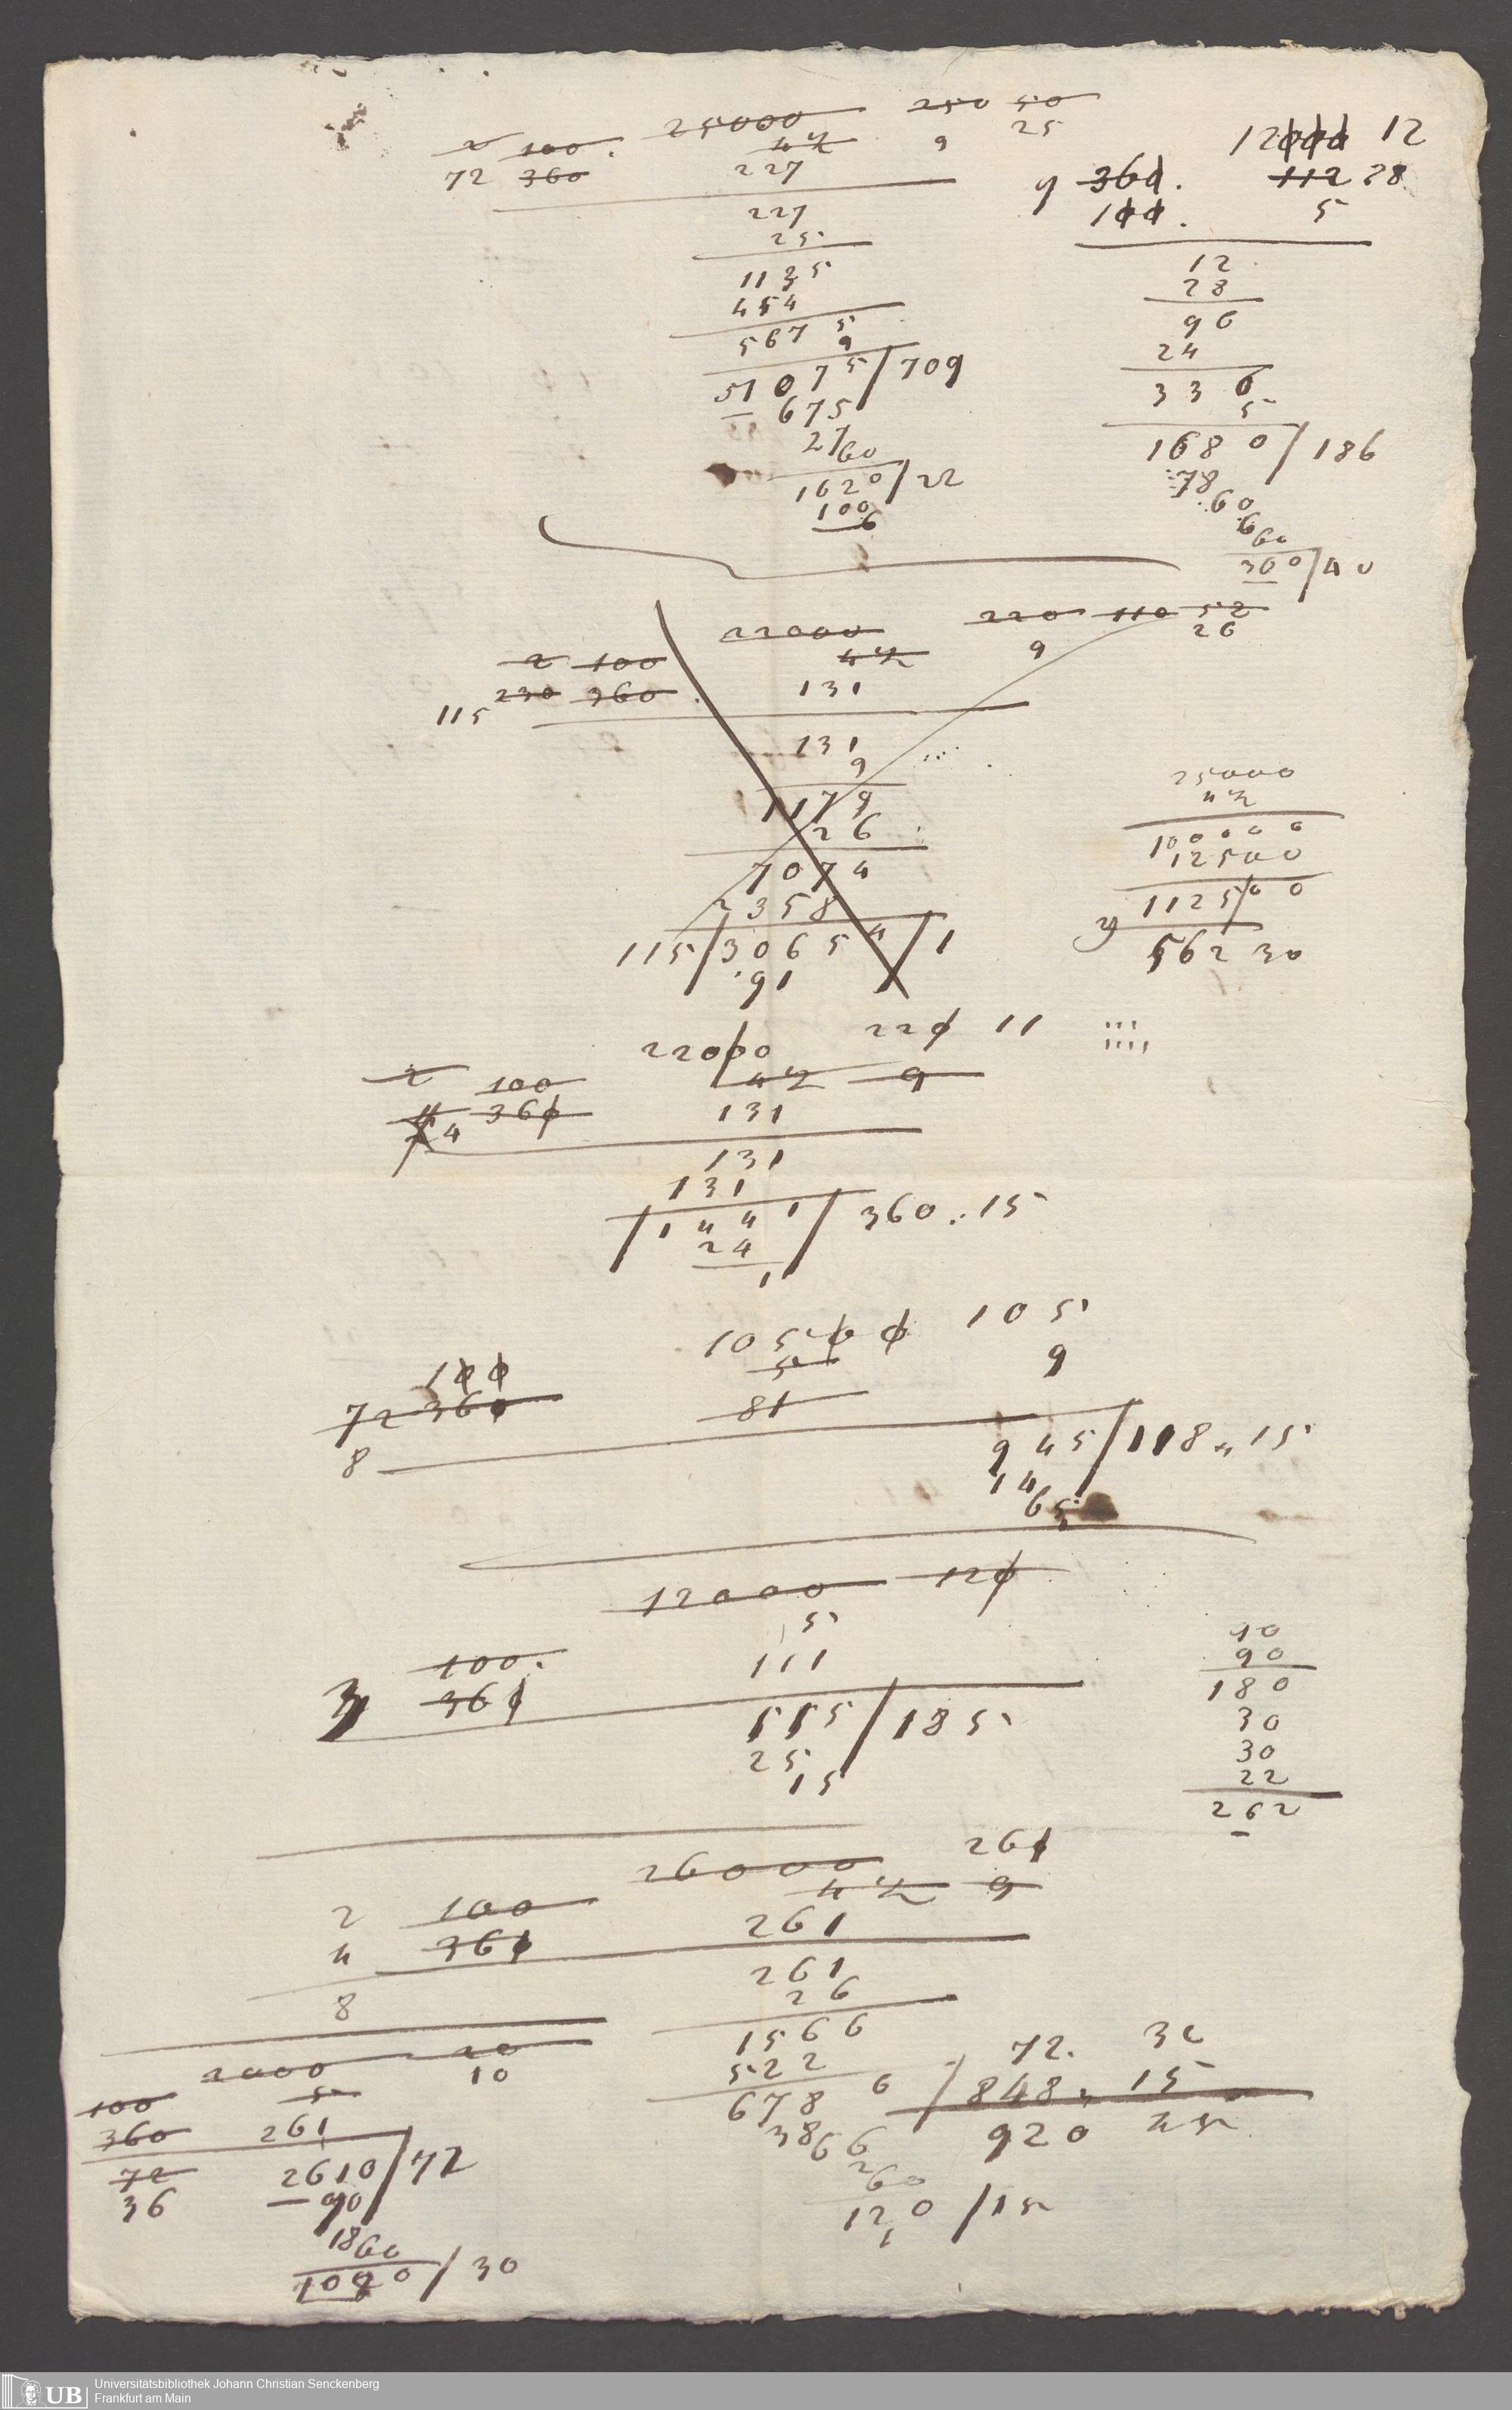 25000 250 50
2 100. 4½ 9 25
72 360 227
227
25
1135
454
5675
9
51075/709
675
27
60
1620/22
100
6
12000 12
9 360. 112 28
100. 5
12
28
96
24
336
5
1680/186
78
60
6
60
360/40
22000 220 110 52
2 100 4½ 9 26
115 230 360. 131
131
9
1179
26
7074
2358
115/30654/1
91
25000
4½
100000
12500
1125/00
562 30
22000 220 11
2 100 4½ 9
4 360 131
131
131
/1441/360.15
24
1
10500 105
100 5 9
72 360 81
8 945/118 15
14
65
12000 120
5
100. 111
3 360
555/185
25
15
90
90
180
30
30
22
262
26000 260
2 100 4½ 9
4 360 261
8 261
26
1566
522
6786/848, 15
72. 30
920 45
3866
2
60
120/15
2000 20
100 5 10
360 261
72 2610/72
36 90
18
60
1080/30
Universitätsbibliothek Johann Christian Senckenberg
Frankfurt am Main
UB